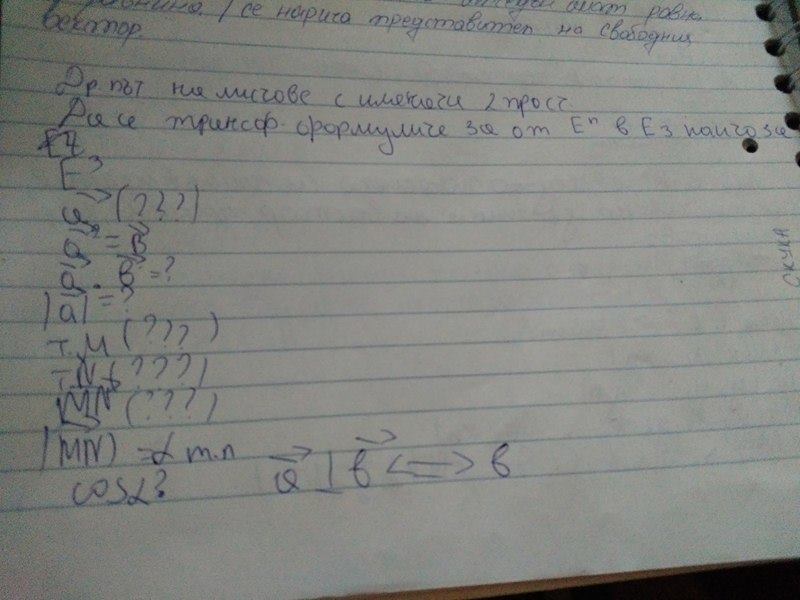 се нарича представител на свободния
вектор.
Др път на листове с имената 2 прост
Да се трансф. формулите за от Eⁿ в E3 написа за
E³
a⃗ (???)
a⃗ = b⃗
a⃗ . b⃗ = ?
|a⃗| = ?
т.M (???)
т.N (???)
MN (???)
|MN| = d m.n
cosα? a⃗ ⊥ b⃗ <=> в
СКУКА